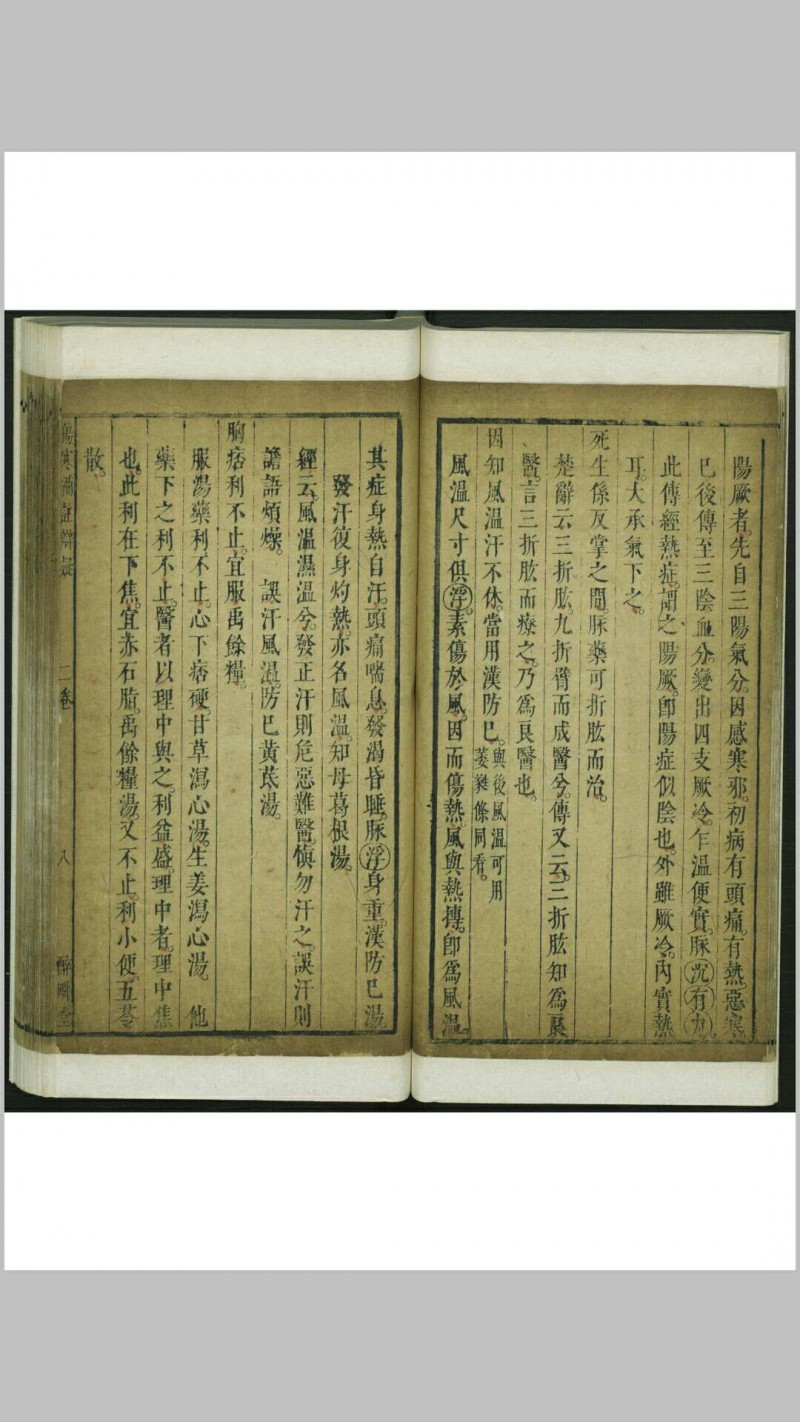 陽厥者。先自三陽氣分。因感寒邪。初病有頭痛。有熱。惡寒。
已後傳至三陰血分。變出四支厥冷。乍溫便實。脉沉有力。
此傳經熱症。謂之陽厥。卽陽症似陰也。外雖厥冷。內實熱
耳。大承氣下之。
死生係反掌之間。脉藥可折肱而治。
楚辭云三折肱。九折臂而成醫兮。傳又云。三折肱知爲良
醫。言三折肱而療之。乃爲良醫也。
因知風溫汗不休。當用漢防已。與後風溫可用
葳蕤條同看。
風溫尺寸俱浮。素傷於風。因而傷熱。風與熱搏。卽爲風溫。
其症身熱自汗。頭痛喘息。發渴昏睡。脉浮身重。漢防已湯
發汗復身灼熱。亦名風溫。知母葛根湯。
經云。風溫濕溫兮。發正汗則危惡難醫。愼勿汗之。誤汗則
譫語煩燥。 誤汗風溫。防已黃茋湯。
胸痞利不止。宜服禹餘糧。
服湯藥利不止。心下痞硬。甘草瀉心湯。生姜瀉心湯。 他
藥下之利不止。醫者以理中與之。利益盛。理中者。理中焦
也。此利在下焦。宜赤石脂禹餘糧湯。又不止。利小便五苓
散。
二卷
八